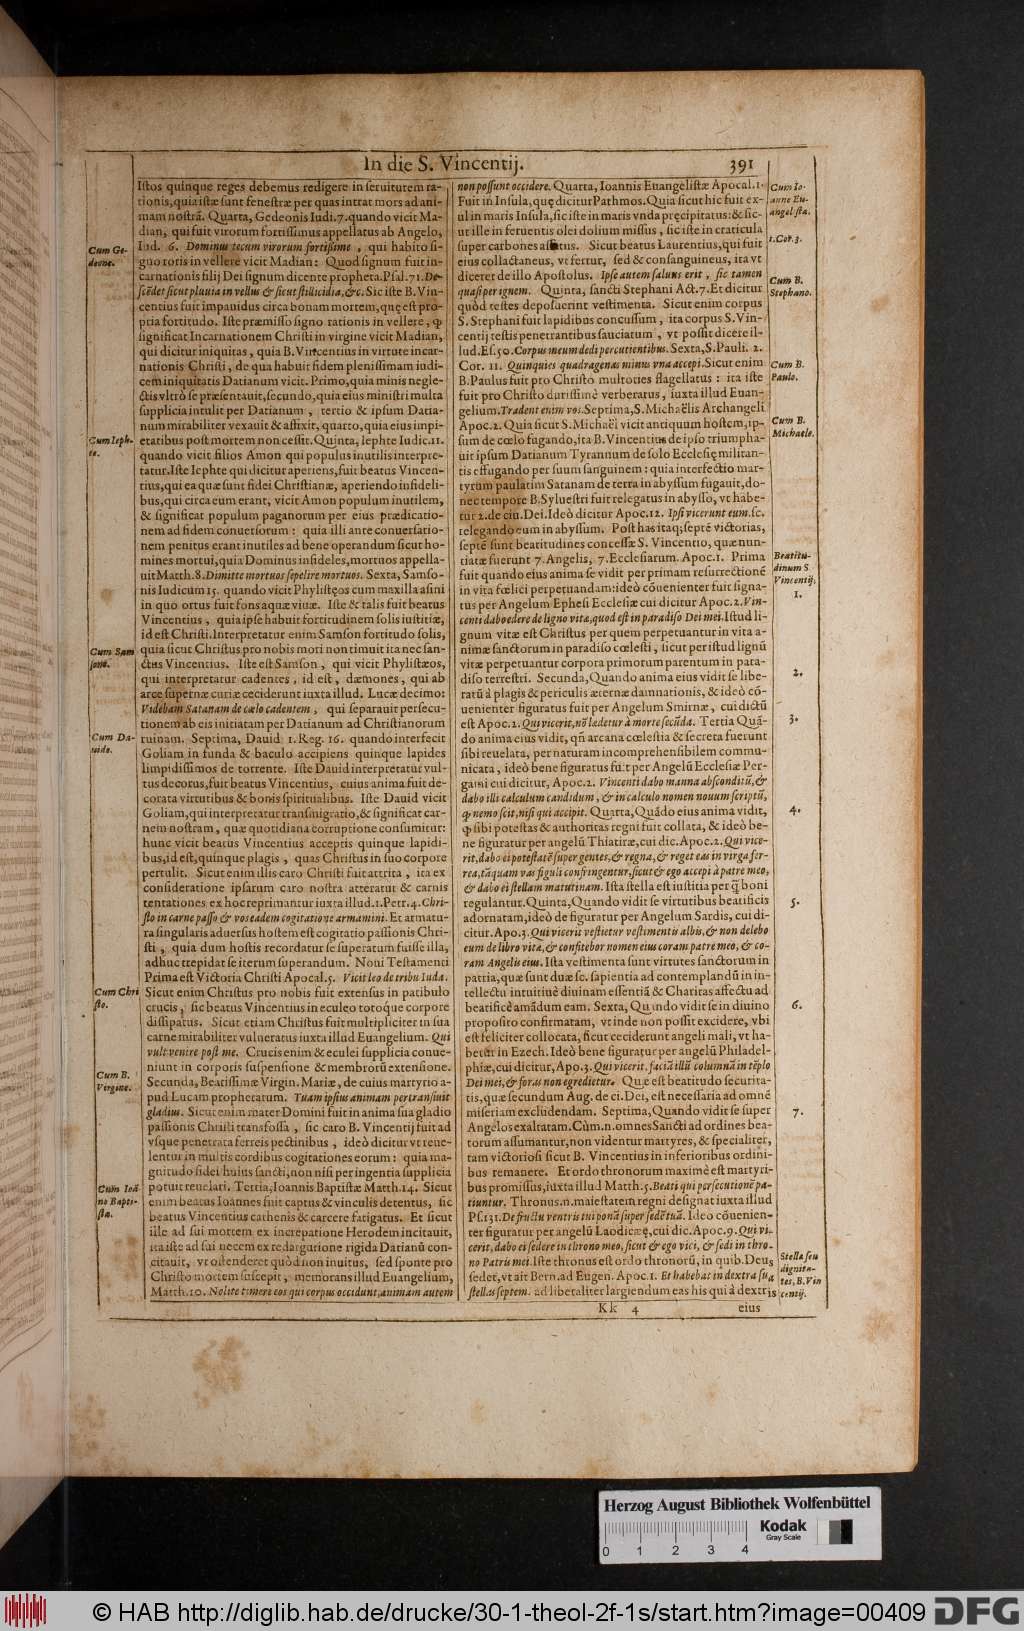 In die S. Vincentij. 391
Istos quinque reges debemus redigere in seruitutem ra-
tionis, quia istæ sunt fenestræ per quas intrat mors ad ani-
mam nostrā. Quarta, Gedeonis Iudi. 7. quando vicit Ma-
dian, qui fuit virorum fortissimus appellatus ab Angelo,
Iud. 6. Dominus tecum virorum fortissime, qui habito si-
gno roris in vellere vicit Madian: Quod signum fuit in-
carnationis filij Dei signum dicente propheta. Psal. 71. De-
scēdet sicut pluuia in vellus & sicut stillicidia, &c. Sic iste B. Vin-
centius fuit impauidus circa bonam mortem, quę est pro-
pria fortitudo. Iste præmisso signo rationis in vellere, ꝙ
significat Incarnationem Christi in virgine vicit Madian,
qui dicitur iniquitas, quia B. Vincentius in virtute incar-
nationis Christi, de qua habuit fidem plenissimam iudi-
cem iniquitatis Datianum vicit. Primo, quia minis negle-
ctis vltrò se præsentauit, secundo, quia eius ministri multa
supplicia intulit per Datianum, tertio & ipsum Datia-
num mirabiliter vexauit & afflixit, quarto, quia eius impi-
etatibus post mortem non cessit. Quinta, Iephte Iudic. 11.
quando vicit filios Amon qui populus inutilis interpre-
tatur. Iste Iephte qui dicitur aperiens, fuit beatus Vincen-
tius, qui ea quæ sunt fidei Christianæ, aperiendo infideli-
bus, qui circa eum erant, vicit Amon populum inutilem,
& significat populum paganorum per eius prædicatio-
nem ad fidem conuersorum: quia illi ante conuersatio-
nem penitus erant inutiles ad bene operandum sicut ho-
mines mortui, quia Dominus infideles, mortuos appella-
uit Matth. 8. Dimitte mortuos sepelire mortuos. Sexta, Samso-
nis Iudicum 15. quando vicit Phylistęos cum maxilla asini
in quo ortus fuit fons aquæ viuæ. Iste & talis fuit beatus
Vincentius, quia ipse habuit fortitudinem solis iustitiæ,
id est Christi. Interpretatur enim Samson fortitudo solis,
quia sicut Christus pro nobis mori non timuit ita nec san-
ctus Vincentius. Iste est Samson, qui vicit Phylistæos,
qui interpretatur cadentes, id est, dæmones, qui ab
arce supernæ curiæ ceciderunt iuxta illud. Lucæ decimo:
Videbam Satanam de cælo cadentem, qui separauit persecu-
tionem ab eis initiatam per Datianum ad Christianorum
ruinam. Septima, Dauid 1. Reg. 16. quando interfecit
Goliam in funda & baculo accipiens quinque lapides
limpidissimos de torrente. Iste Dauid interpretatur vul-
tus decorus, fuit beatus Vincentius, cuius anima fuit de-
corata virtutibus & bonis spiritualibus. Iste Dauid vicit
Goliam, qui interpretatur transmigratio, & significat car-
nem nostram, quæ quotidiana corruptione consumitur:
hunc vicit beatus Vincentius acceptis quinque lapidi-
bus, id est, quinque plagis, quas Christus in suo corpore
pertulit. Sicut enim illis caro Christi fuit attrita, ita ex
consideratione ipsarum caro nostra atteratur & carnis
tentationes ex hoc reprimantur iuxta illud. 1. Petr. 4. Chri-
sto in carne passo & vos eadem cogitatione armamini. Et armatu-
ra singularis aduersus hostem est cogitatio passionis Chri-
sti, quia dum hostis recordatur se superatum fuisse illa,
adhuc trepidat se iterum superandum. Noui Testamenti
Prima est Victoria Christi Apocal. 5. Vicit leo de tribu Iuda.
Sicut enim Christus pro nobis fuit extensus in patibulo
crucis, sic beatus Vincentius in eculeo totoque corpore
dissipatus. Sicut etiam Christus fuit multipliciter in sua
carne mirabiliter vulneratus iuxta illud Euangelium. Qui
vult venire post me. Crucis enim & eculei supplicia conue-
niunt in corporis suspensione & membrorū extensione.
Secunda, Beatissimæ Virgin. Mariæ, de cuius martyrio a-
pud Lucam prophetatum. Tuam ipsius animam pertransiuit
gladius. Sicut enim mater Domini fuit in anima sua gladio
passionis Christi transfossa, sic caro B. Vincentij fuit ad
vsque penetrata ferreis pectinibus, ideò dicitur vt reue-
lentur in multis cordibus cogitationes eorum: quia ma-
gnitudo fidei huius sancti, non nisi per ingentia supplicia
potuit reuelari. Tertia, Ioannis Baptistæ Matth. 14. Sicut
enim beatus Ioannes fuit captus & vinculis detentus, sic
beatus Vincentius cathenis & carcere fatigatus. Et sicut
ille ad sui mortem ex increpatione Herodem incitauit,
ita iste ad sui necem ex redargutione rigida Datianū con-
citauit, vt ostenderet quòd non inuitus, sed sponte pro
Christo mortem suscepit, memorans illud Euangelium,
Matth. 10. Nolite timere eos qui corpus occidunt, animam autem
Cum Ge-
deone.
Cum Ieph-
te.
Cum Sam
sone.
Cum Da-
uide.
Cum Chri
sto.
Cum B.
Virgine.
Cum Ioā
no Bapti-
sta.
non possunt occidere. Quarta, Ioannis Euangelistæ Apocal. 1.
Fuit in Insula, quę dicitur Pathmos. Quia sicut hic fuit ex-
ul in maris Insula, sic iste in maris vnda pręcipitatus: & sic-
ut ille in feruentis olei dolium missus, sic iste in craticula
super carbones assatus. Sicut beatus Laurentius, qui fuit
eius collactaneus, vt fertur, sed & consanguineus, ita vt
diceret de illo Apostolus. Ipse autem saluus erit, sic tamen
quasi per ignem. Quinta, sancti Stephani Act. 7. Et dicitur
quòd testes deposuerint vestimenta. Sicut enim corpus
S. Stephani fuit lapidibus concussum, ita corpus S. Vin-
centij testis penetrantibus sauciatum, vt possit dicere il-
lud. Es. 50. Corpus meum dedi percutientibus. Sexta, S. Pauli. 2.
Cor. 11. Quinquies quadragenas minus vna accepi. Sicut enim
B. Paulus fuit pro Christo multoties flagellatus: ita iste
fuit pro Christo durissimè verberatus, iuxta illud Euan-
gelium. Tradent enim vos. Septima, S. Michaëlis Archangeli
Apoc. 2. Quia sicut S. Michaël vicit antiquum hostem, ip-
sum de cœlo fugando, ita B. Vincentius de ipso triumpha-
uit ipsum Datianum Tyrannum de solo Ecclesię militan-
tis effugando per suum sanguinem: quia interfectio mar-
tyrum paulatim Satanam de terra in abyssum fugauit, do-
nec tempore B. Syluestri fuit relegatus in abysso, vt habe-
tur 2. de ciu. Dei. Ideò dicitur Apoc. 12. Ipsi vicerunt eum. sc.
relegando eum in abyssum. Post has itaq; septē victorias,
septē sunt beatitudines concessæ S. Vincentio, quæ nun-
tiatæ fuerunt 7. Angelis, 7. Ecclesiarum. Apoc. 1. Prima
fuit quando eius anima se vidit per primam resurrectionē
in vita fœlici perpetuandam: ideò cōuenienter fuit signa-
tus per Angelum Ephesi Ecclesiæ cui dicitur Apoc. 2. Vin-
centi dabo edere de ligno vitæ, quod est in paradiso Dei mei. Istud li-
gnum vitæ est Christus per quem perpetuantur in vita a-
nimæ sanctorum in paradiso cœlesti, sicut per istud lignū
vitæ perpetuantur corpora primorum parentum in para-
diso terrestri. Secunda, Quando anima eius vidit se libe-
ratū à plagis & periculis æternæ damnationis, & ideò cō-
uenienter figuratus fuit per Angelum Smirnæ, cui dictū
est Apoc. 2. Qui vicerit, nō lædetur à morte secūda. Tertia Quā-
do anima eius vidit, qñ arcana cœlestia & secreta fuerunt
sibi reuelata, per naturam incomprehensibilem commu-
nicata, ideò bene figuratus fuit per Angelū Ecclesiæ Per-
gami cui dicitur, Apoc. 2. Vincenti dabo manna absconditū, &
dabo illi calculum candidum, & in calculo nomen nouum scriptū,
ꝙ nemo scit, nisi qui accipit. Quarta, Quādo eius anima vidit,
ꝙ sibi potestas & authoritas regni fuit collata, & ideò be-
ne figuratur per angelū Thiatiræ, cui dic. Apoc. 2. Qui vice-
rit, dabo ei potestatē super gentes, & regna, & reget eas in virga fer-
rea, tāquam vas figuli confringentur, sicut & ego accepi à patre meo,
& dabo ei stellam matutinam. Ista stella est iustitia per q̄ boni
regulantur. Quinta, Quando vidit se virtutibus beatificis
adornatam, ideò de figuratur per Angelum Sardis, cui di-
citur. Apo. 3. Qui vicerit vestietur vestimentis albis, & non delebo
eum de libro vitæ, & confitebor nomen eius coram patre meo, & co-
ram Angelis eius. Ista vestimenta sunt virtutes sanctorum in
patria, quæ sunt duæ sc. sapientia ad contemplandū in in-
tellectu intuitiuè diuinam essentiā & Charitas affectu ad
beatificè amādum eam. Sexta, Quando vidit se in diuino
proposito confirmatam, vt inde non possit excidere, vbi
est feliciter collocata, sicut ceciderunt angeli mali, vt ha-
betur in Ezech. Ideò bene figuratur per angelū Philadel-
phiæ, cui dicitur, Apo. 3. Qui vicerit, faciā illū columnā in tēplo
Dei mei, & foras non egredietur. Quæ est beatitudo securita-
tis, quæ secundum Aug. de ci. Dei, est necessaria ad omnē
miseriam excludendam. Septima, Quando vidit se super
Angelos exaltatam. Cùm. n. omnes Sancti ad ordines bea-
torum assumantur, non videntur martyres, & specialiter,
tam victoriosi sicut B. Vincentius in inferioribus ordini-
bus remanere. Et ordo thronorum maximè est martyri-
bus promissus, iuxta illud Matth. 5. Beati qui persecutionē pa-
tiuntur. Thronus. n. maiestatem regni designat iuxta illud
Ps. 131. De fructu ventris tui ponā super sedē tuā. Ideo cōuenien-
ter figuratur per angelū Laodiceæ, cui dic. Apoc. 9. Qui vi-
cerit, dabo ei sedere in throno meo, sicut & ego vici, & sedi in thro-
no Patris mei. Iste thronus est ordo thronorū, in quib. Deus
sedet, vt ait Bern. ad Eugen. Apoc. 1. Et habebat in dextra sua
stellas septem. ad liberaliter largiendum eas his qui à dextris
Cum Io-
anne Eu-
angelista.
1. Cor. 3.
Cum B.
Stephano.
Cum B.
Paulo.
Cum B.
Michaele.
Beatitu-
dinum S
Vincentij.
1.
2.
3.
4.
5.
6.
7.
Stella seu
dignita-
tes, B. Vin
centij.
Kk 4 eius
Herzog August Bibliothek Wolfenbüttel
Kodak
Gray Scale
0 1 2 3 4
© HAB http://diglib.hab.de/drucke/30-1-theol-2f-1s/start.htm?image=00409 DFG